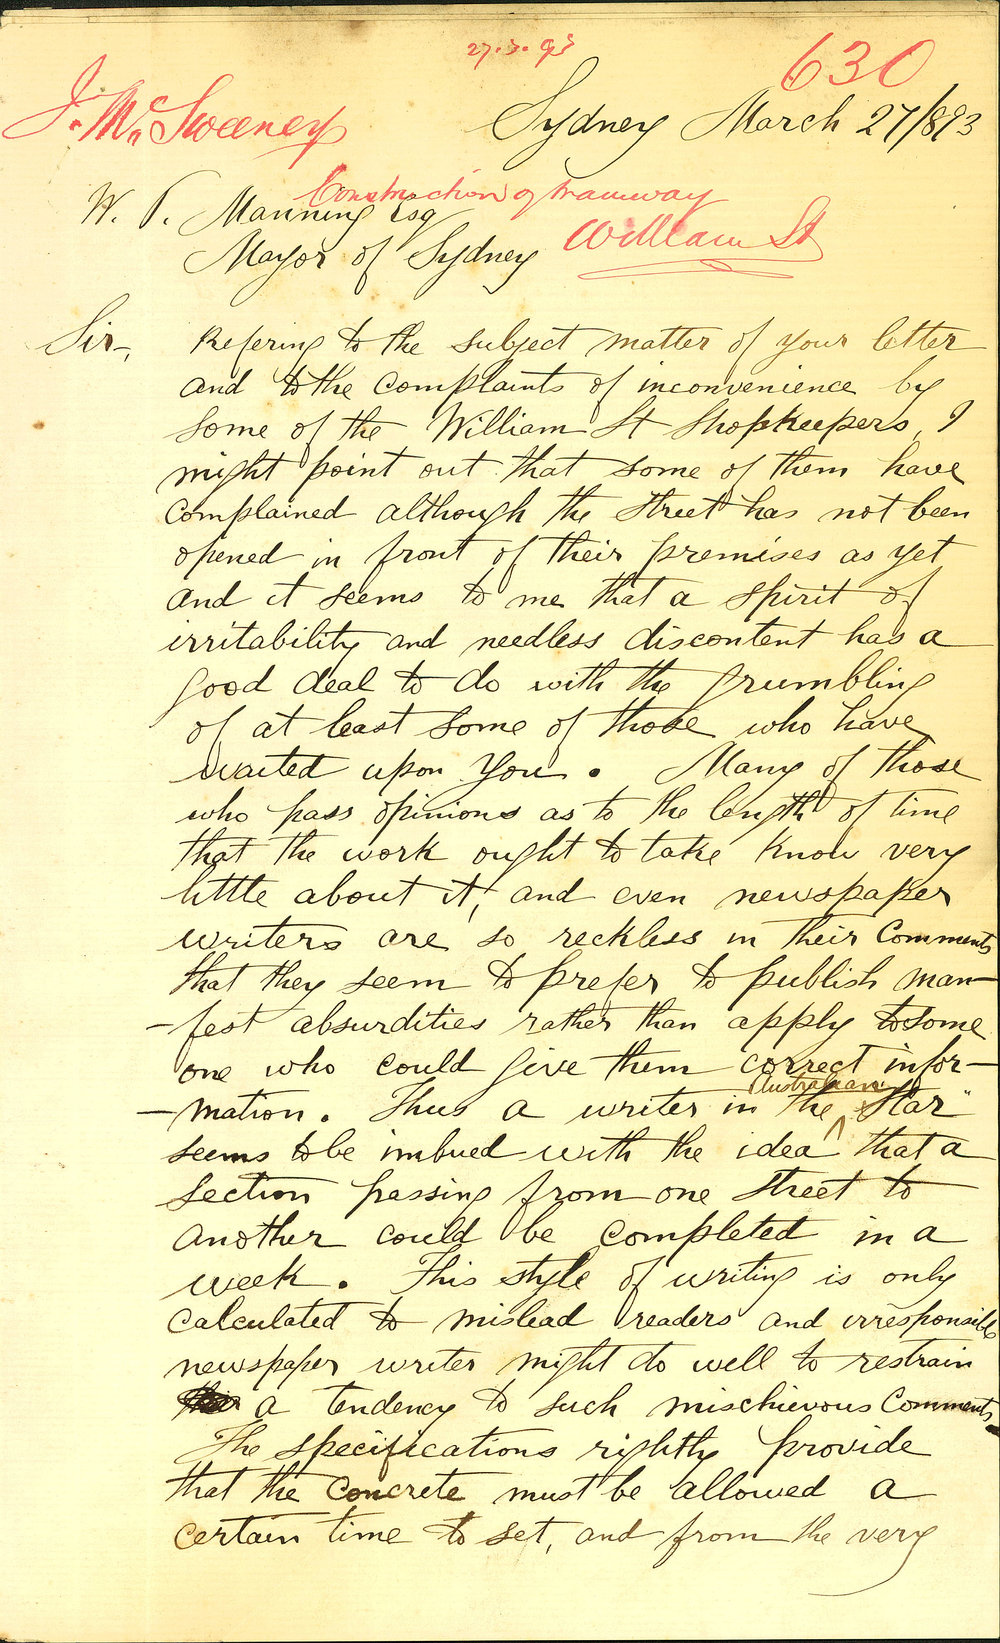 27.3.93
630
J. McSweeney
Sydney March 27/893
Construction of tramway
W. P. Manning Esq
William St
Mayor of Sydney
Sir, Refering to the subject matter of your letter
and to the complaints of inconvenience by
some of the William St Shopkeepers, I
might point out that some of them have
complained although the street has not been
opened in front of their premises as yet
and it seems to me that a spirit of
irritability and needless discontent has a
good deal to do with the grumbling
of at least some of those who have
waited upon you. Many of those
who pass opinions as to the length of time
that the work ought to take know very
little about it, and even newspaper
writers are so reckless in their comments
that they seem to prefer to publish man-
-fest absurdities rather than apply to some
one who could give them correct infor-
Australian
-mation. Thus a writer in the ^ Star"
seems to be imbued with the idea that a
section passing from one street to
another could be completed in a
week. This style of writing is only
calculated to mislead readers and irresponsible
newspaper writer might do well to restrain
a tendency to such mischievous comments.
The specifications rightly provide
that the concrete must be allowed a
certain time to set, and from the very